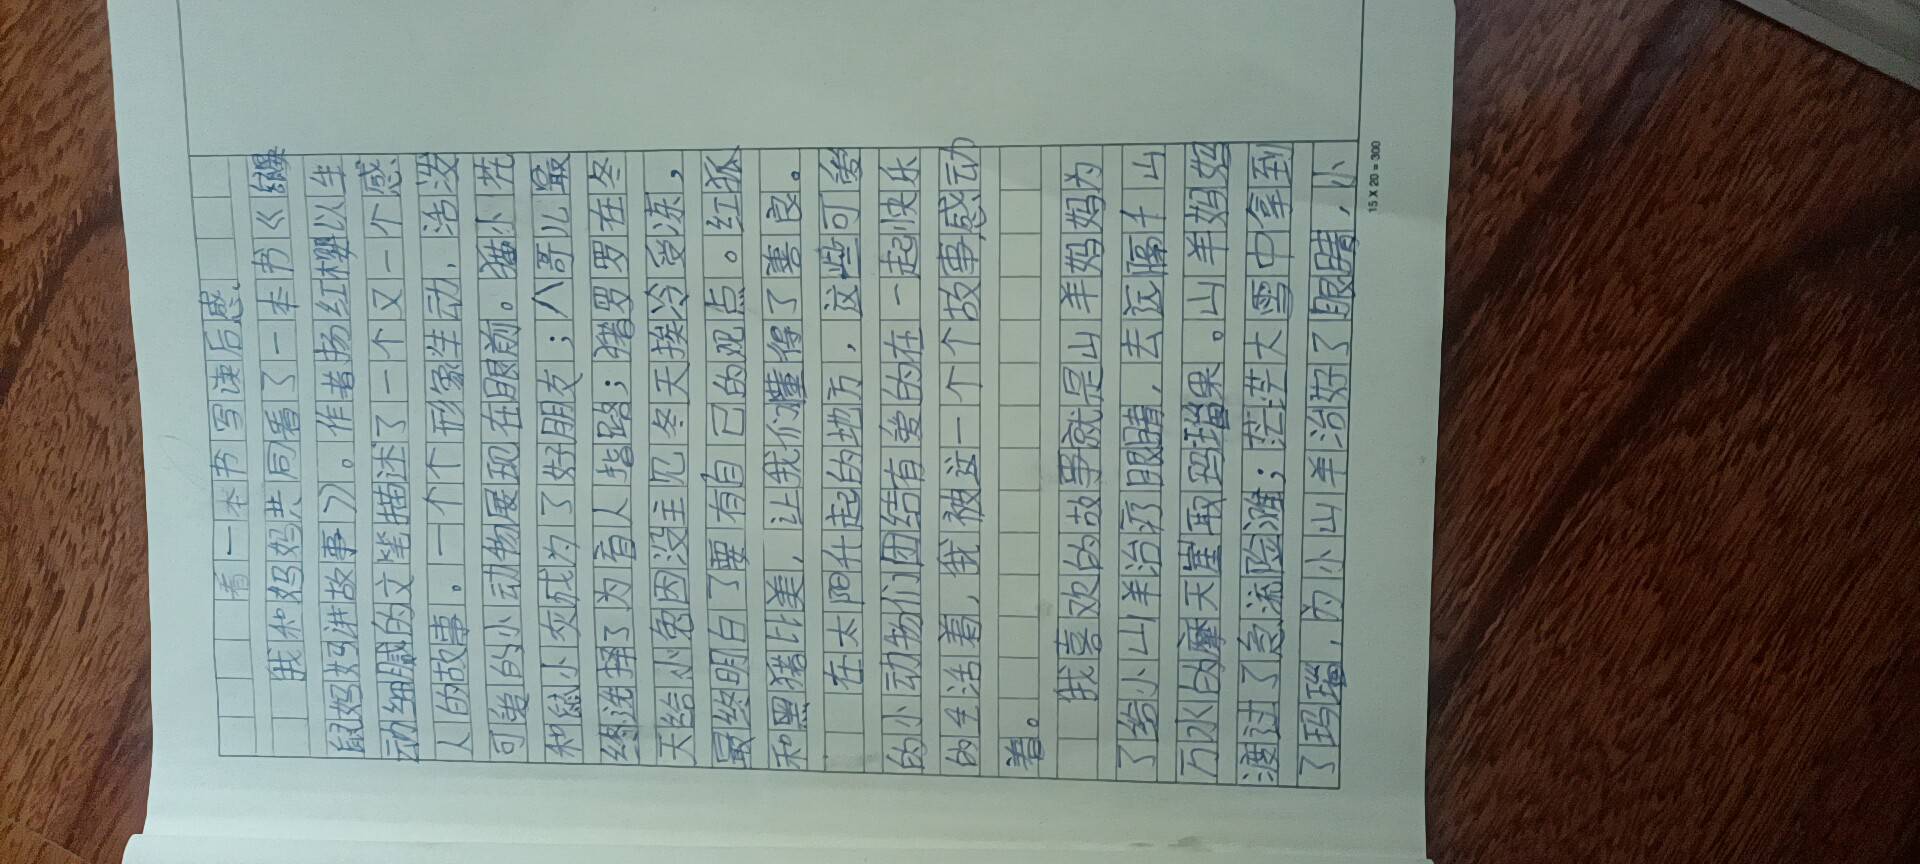 看一本书写读后感.
我和妈妈共同看了一本书《鼹
鼠妈妈讲故事》。作者杨红樱以生
动细腻的文笔描述了一个又一个感
人的故事。一个个形象生动,活泼
可爱的小动物展现在眼前。猫小花
和鼠小灰成为了好朋友;八哥儿最
终选择了为盲人指路;猪罗罗在冬
天给小兔因没主见冬天挨冷受冻,
最终明白了要有自己的观点。红狐
和黑猪比美,让我们懂得了善良。
在太阳升起的地方,这些可爱
的小动物们团结有爱的在一起快乐
的生活着,我被这一个个故事感动
着。
我喜欢的故事就是山羊妈妈为
了给小山羊治疗眼睛,去远隔千山
万水的摩天崖取玛瑙果。山羊妈妈
渡过了急流险滩;茫茫大雪中拿到
了玛瑙,为小山羊治好了眼睛,小
15 X 20 = 300